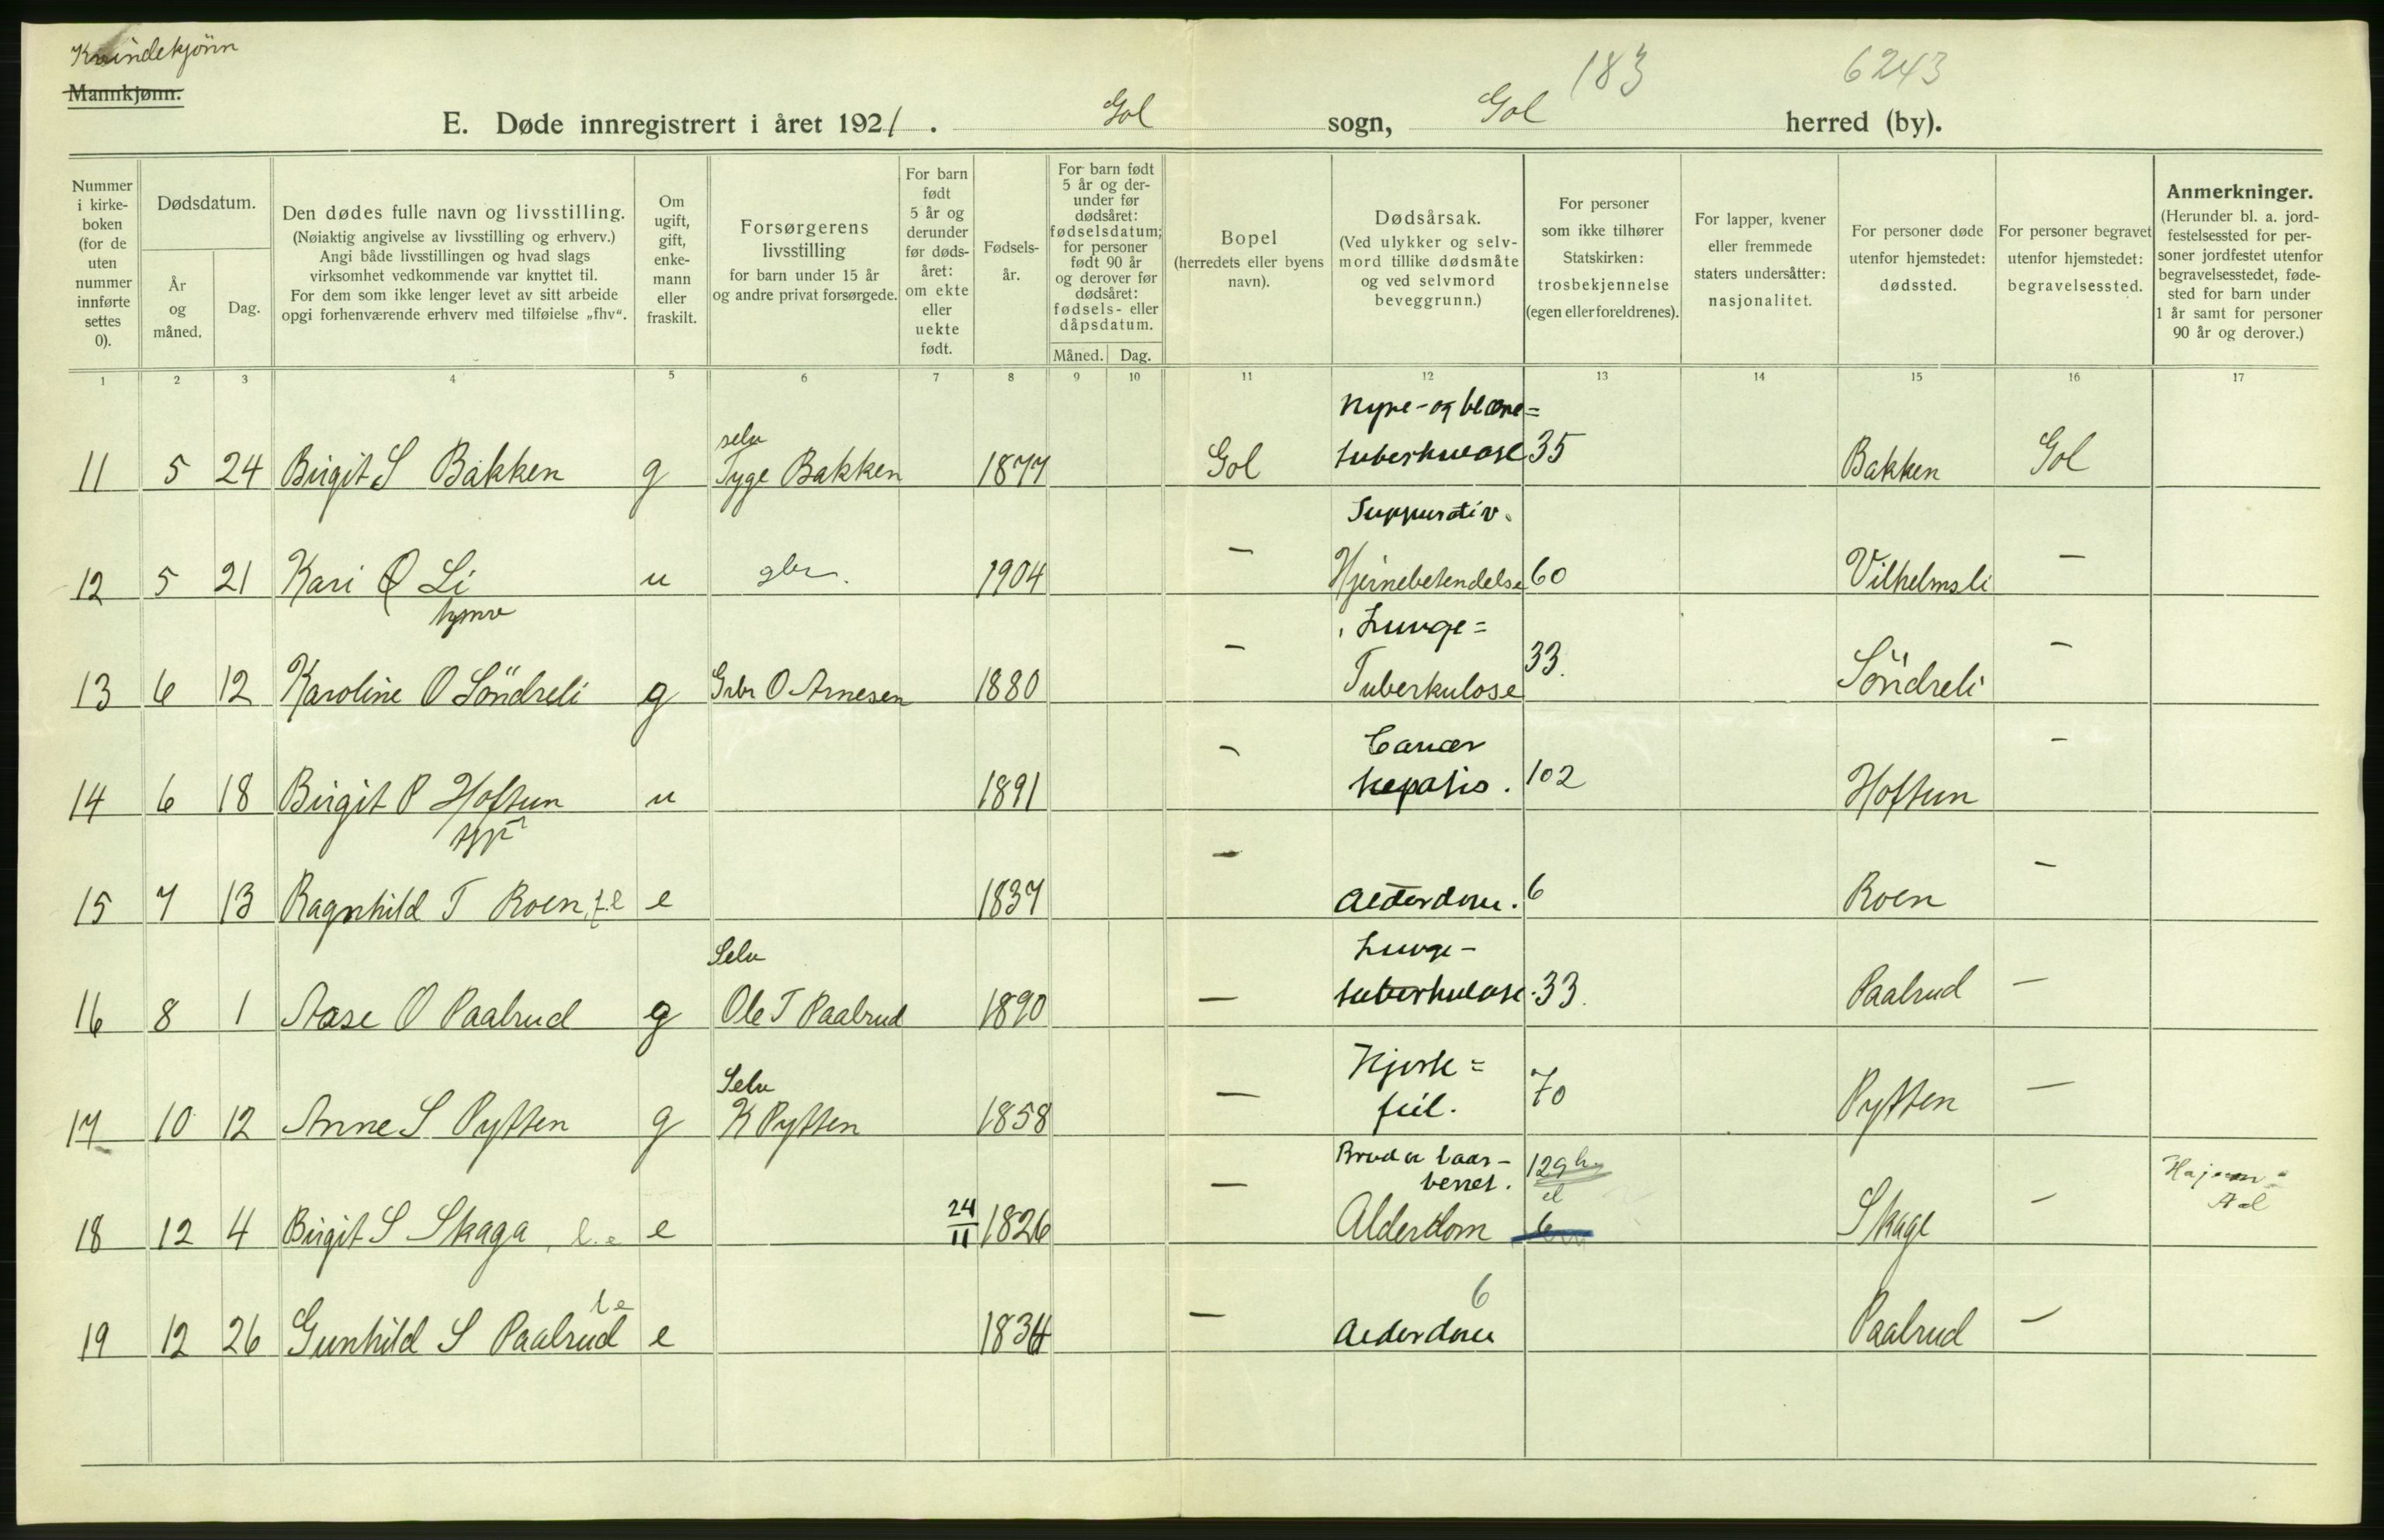 Kvindekjönn
Mannkjønn.
183
6243
E. Døde innregistrert i året 1921. Gol sogn, Gol herred (by).
Nummer i kirkeboken (for de uten nummer innførte settes 0).
Dødsdatum.
År og måned.
Dag.
Den dødes fulle navn og livsstilling.
(Nøiaktig angivelse av livsstilling og erhverv.)
Angi både livsstillingen og hvad slags
virksomhet vedkommende var knyttet til.
For dem som ikke lenger levet av sitt arbeide
opgi forhenværende erhverv med tilføielse „fhv“.
Om ugift, gift, enkemann eller fraskilt.
Forsørgerens livsstilling
for barn under 15 år
og andre privat forsørgede.
For barn født 5 år og derunder før dødsåret: om ekte eller uekte født.
Fødselsår.
For barn født 5 år og derunder før dødsåret: fødselsdatum; for personer født 90 år og derover før dødsåret: fødsels- eller dåpsdatum.
Måned. Dag.
Bopel
(herredets eller byens navn).
Dødsårsak.
(Ved ulykker og selvmord tillike dødsmåte og ved selvmord beveggrunn.)
For personer som ikke tilhører Statskirken: trosbekjennelse (egen eller foreldrenes).
For lapper, kvener eller fremmede staters undersåtter: nasjonalitet.
For personer døde utenfor hjemstedet: dødssted.
For personer begravet utenfor hjemstedet: begravelsessted.
Anmerkninger.
(Herunder bl. a. jordfestelsessted for personer jordfestet utenfor begravelsesstedet, fødested for barn under 1 år samt for personer 90 år og derover.)
1 2 3 4 5 6 7 8 9 10 11 12 13 14 15 16 17
Nyre- og blære=
selv
11 5 24 Birgit S Bakken g Tyge Bakken 1877 Gol tuberkulose 35 Bakken Gol
Suppurativ.
12 5 21 Kari O Li u gbr. 1904 – Hjernebetendelse 60 Vilhelmsli –
Lunge=
13 6 12 Karoline O Söndreli g Gbr O Arnesen 1880 – Tuberkulose 33. Söndreli –
Cancer
14 6 18 Birgit P Hoftun u 1891 – hepatis. 102 Hoftun –
15 7 13 Ragnhild T Roen, l.e e 1837 – Alderdom. 6 Roen –
Selv Lunge-
16 8 1 Aase O Paalrud g Ole T Paalrud 1890 – tuberkulose. 33. Paalrud –
Selv Hjerte=
17 10 12 Anne S Pytten g K Pytten 1858 – feil. 70 Pytten –
Brud a laar-
benet. 129
18 12 4 Birgit S Skaga, l.e e 24/11 1826 – Alderdom 6 Skage –
l e 6
19 12 26 Gunhild S Paalrud e 1834 – Alderdom Paalrud –